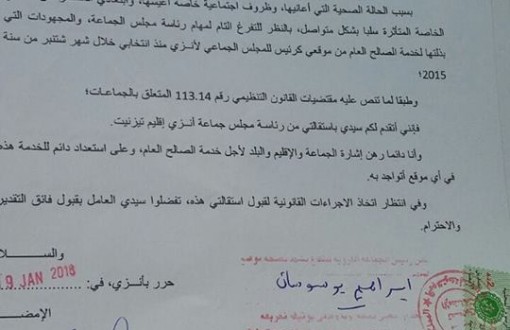 بسبب الحالة الصحية التي أعانيها، وظروف اجتماعية خاصة أعيشها،
الخاصة المتأثرة سلبا بشكل متواصل، بالنظر للتفرغ التام لمهام رئاسة مجلس الجماعة، والمجهودات التي
بذلتها لخدمة الصالح العام من موقعي كرئيس للمجلس الجماعي لأنزي منذ انتخابي خلال شهر شتنبر من سنة
2015؛
وطبقا لما تنص عليه مقتضيات القانون التنظيمي رقم 113.14 المتعلق بالجماعات؛
فإنني أتقدم لكم سيدي باستقالتي من رئاسة مجلس جماعة أنزي إقليم تيزنيت.
وأنا دائما رهن إشارة الجماعة والإقليم والبلد لأجل خدمة الصالح العام، وعلى استعداد دائم للخدمة هذه
في أي موقع أتواجد به.
وفي انتظار اتخاذ الاجراءات القانونية لقبول استقالتي هذه، تفضلوا سيدي العامل بقبول فائق التقدير
والاحترام.
والسلا
حرر بأنزي، في: 9 JAN 2018
ابراهيم بوسوسان
الإمضـ